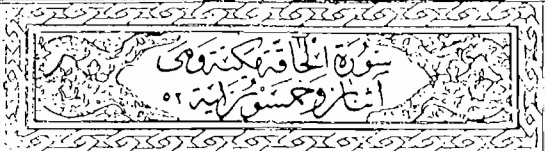 سُورَةُ الْحَاقَّةِ مَكِّيَّةٌ وَهِيَ
اثْنَانِ وَخَمْسُونَ آيَةً ٥٢